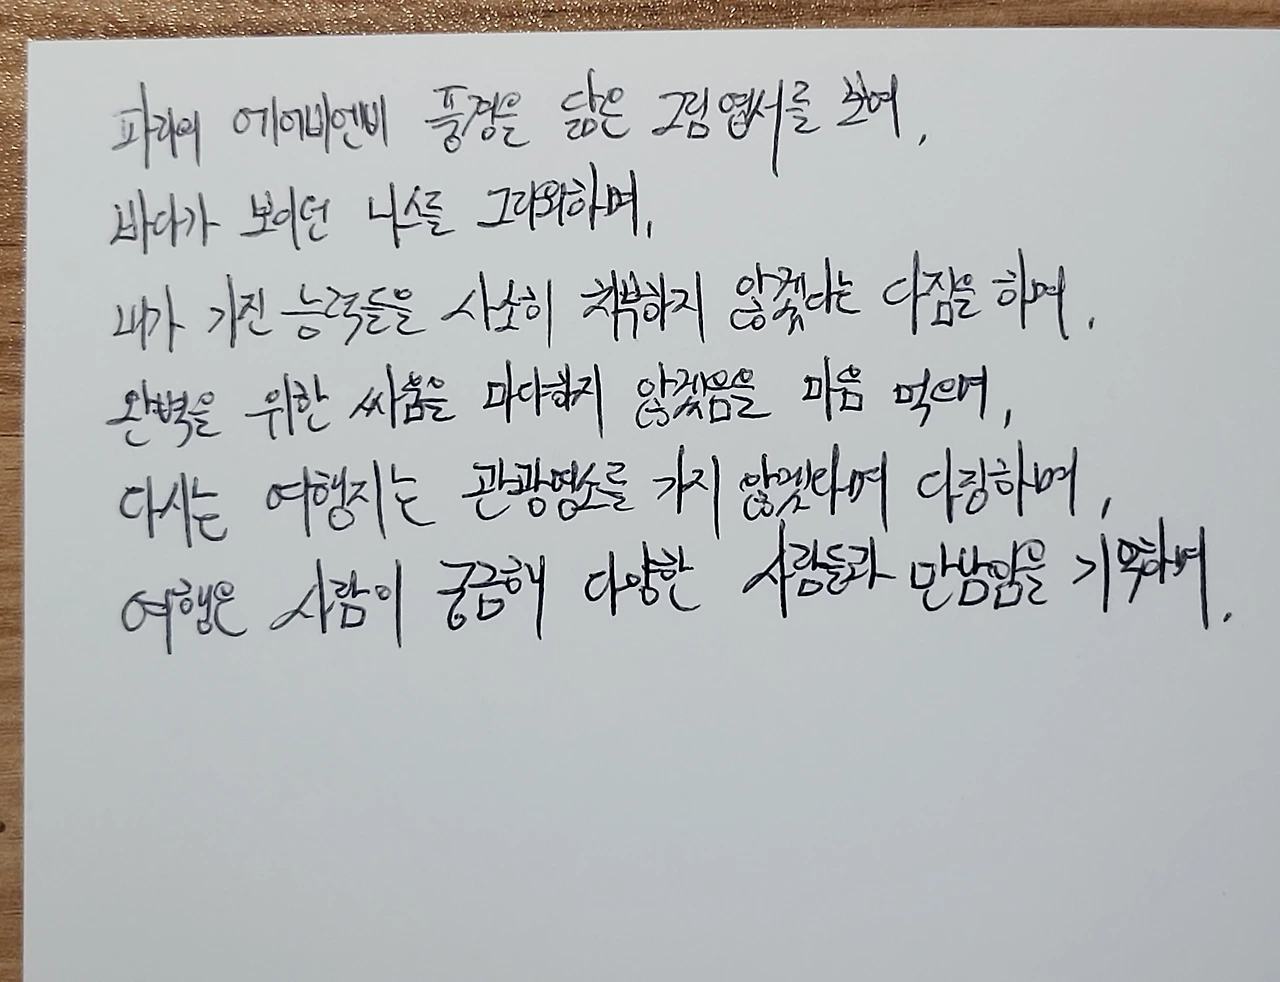 파리의 에어비엔비 풍경을 닮은 그림 엽서를 보며,
바다가 보이던 니스를 그리워하며,
내가 가진 능력들을 사소히 취부하지 않겠다는 다짐을 하며,
완벽을 위한 싸움을 마다하지 않겠음을 마음 먹으며,
다시는 여행지는 관광명소를 가지 않겠다며 다짐하며,
여행은 사람이 궁금해 다양한 사람들과 만남얌을 기억하며,